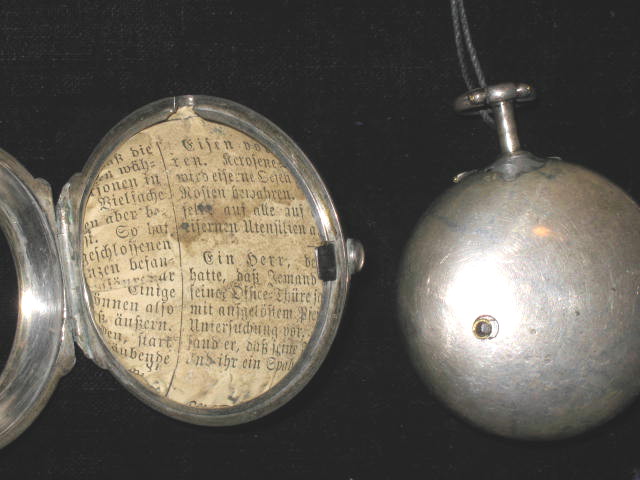 aß dies
en wäh-
ionen in
Vielfache
an aber be-
st. So hat
geschlossenen
nzen besan-
Einige
önnen also
ß äußern.
en, stark
äubende
Eisen vo
ren. Kerosene
wird eiserne Oefen
Rosten bewahren.
auf alle auf
eisernen Utensilien a
Ein Herr, de
hatte, daß Jemand
seine Office-Thüre
mit aufgelöstem
Untersuchung vor.
fand er, daß seine
und ihr ein